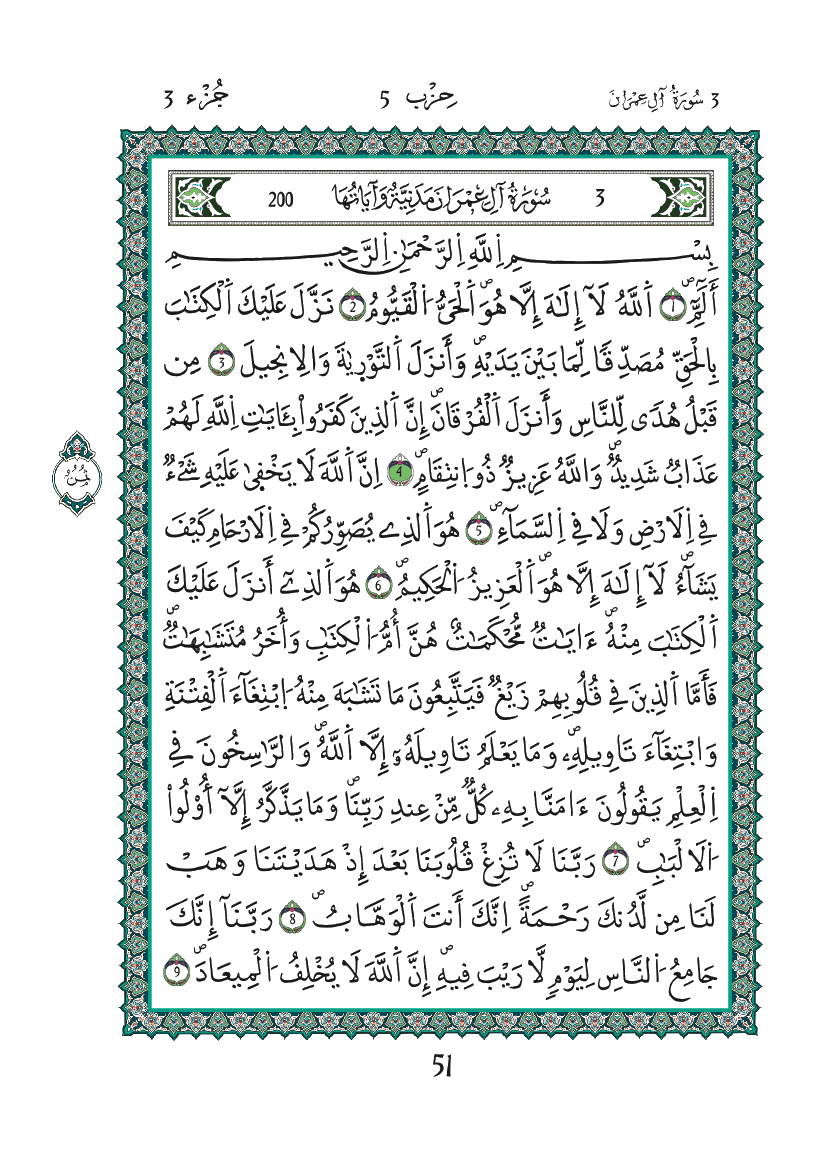 3 سُورَةُ آلِ عِمْرَانَ حِزْب 5 جُزْء 3
3 سُورَةُ آلِ عِمْرَانَ مَدَنِيَّةٌ وَآيَاتُهَا 200
بِسْمِ اِللَّهِ اِلرَّحْمَٰنِ اِلرَّحِيمِ
أَلَٓمِّٓۖ 1 اَللَّهُ لَآ إِلَٰهَ إِلَّا هُوَۖ اَلْحَىُّ اَلْقَيُّومُۖ 2 نَزَّلَ عَلَيْكَ اَلْكِتَٰبَ
بِالْحَقِّ مُصَدِّقًا لِّمَا بَيْنَ يَدَيْهِۖ وَأَنزَلَ اَلتَّوْرِيٰةَ وَالِانجِيلَ 3 مِن
قَبْلُ هُدًى لِّلنَّاسِ وَأَنزَلَ اَلْفُرْقَانَۖ إِنَّ اَلذِينَ كَفَرُواْ بِـَٔايَٰتِ اِللَّهِ لَهُمْ
عَذَابٌ شَدِيدٌۖ وَاللَّهُ عَزِيزٌ ذُو اُنتِقَامٍۖ 4 اِنَّ اَللَّهَ لَا يَخْفِىٰ عَلَيْهِ شَےْءٌ
فِے اِلَارْضِ وَلَا فِے اِلسَّمَآءِۖ 5 هُوَ اَلذِے يُصَوِّرُكُمْ فِے اِلَارْحَامِ كَيْفَ
يَشَآءُۖ لَآ إِلَٰهَ إِلَّا هُوَۖ اَلْعَزِيزُ اُلْحَكِيمُۖ 6 هُوَ اَلذِےٓ أَنزَلَ عَلَيْكَ
اَلْكِتَٰبَ مِنْهُۖ ءَايَٰتٌ مُّحْكَمَٰتٌ هُنَّ أُمُّ اُلْكِتَٰبِ وَأُخَرُ مُتَشَٰبِهَٰتٌۖ
فَأَمَّا اَلذِينَ فِے قُلُوبِهِمْ زَيْغٌ فَيَتَّبِعُونَ مَا تَشَٰبَهَ مِنْهُ اُبْتِغَآءَ اَلْفِتْنَةِ
وَابْتِغَآءَ تَاوِيلِهِۦۖ وَمَا يَعْلَمُ تَاوِيلَهُۥٓ إِلَّا اَللَّهُۖ وَالرَّٰسِخُونَ فِے
اِلْعِلْمِ يَقُولُونَ ءَامَنَّا بِهِۦ كُلٌّ مِّنْ عِندِ رَبِّنَاۖ وَمَا يَذَّكَّرُ إِلَّآ أُوْلُواْ
اُلَالْبَٰبِۖ 7 رَبَّنَا لَا تُزِغْ قُلُوبَنَا بَعْدَ إِذْ هَدَيْتَنَا وَهَبْ
لَنَا مِن لَّدُنكَ رَحْمَةًۖ اِنَّكَ أَنتَ اَلْوَهَّابُۖ 8 رَبَّنَآ إِنَّكَ
جَامِعُ اُلنَّاسِ لِيَوْمٍ لَّا رَيْبَ فِيهِۖ إِنَّ اَللَّهَ لَا يُخْلِفُ اُلْمِيعَادَۖ 9
ثُمُن
51